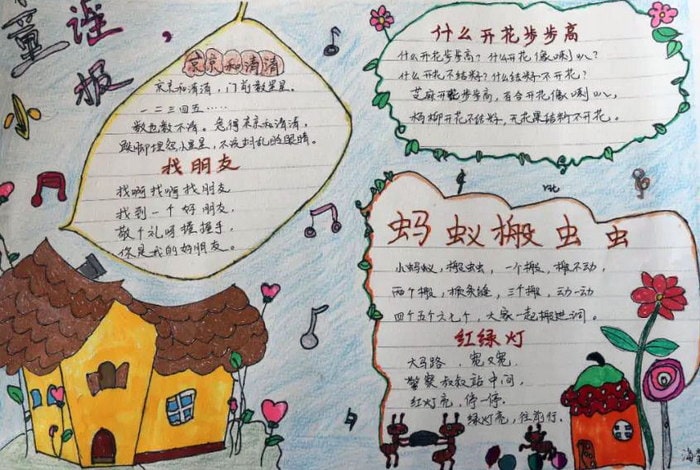 童谣
小报
京京和清清
京京和清清，门前数星星。
一二三四五……
数也数不清。急得京京和清清，
跺脚埋怨小星星，不该
找朋友
找啊找啊找朋友
找到一个好朋友，
敬个礼呀握握手，
你是我的好朋友。
什么开花步步高
什么开花步步高？什么开花像喇叭？
什么开花不结籽？什么结籽不开花？
芝麻开花步步高，百合开花像喇叭，
杨柳开花不结籽，无花果结籽不开花。
蚂蚁搬虫虫
小蚂蚁，搬虫虫，一个搬，搬不动，
两个搬，掀条缝，三个搬，动一动
四个五个六七个，大家一起搬进洞。
红绿灯
大马路，宽又宽，
警察叔叔站中间，
红灯亮，停一停，
绿灯亮，往前行。